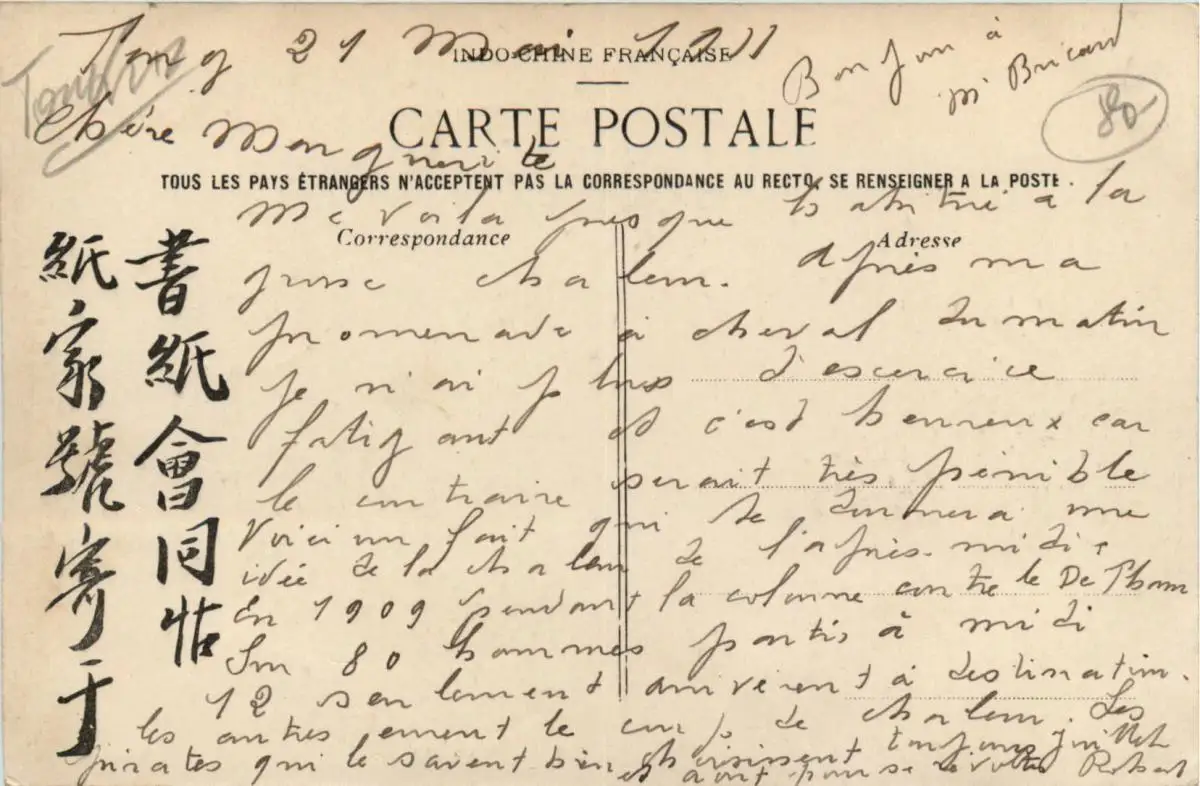 Tong 21 Mai 1911
INDO-CHINE FRANÇAISE
Bonjour à
Mr Bricard
Tonkin
80
Chère Marguerite
CARTE POSTALE
TOUS LES PAYS ÉTRANGERS N'ACCEPTENT PAS LA CORRESPONDANCE AU RECTO. SE RENSEIGNER A LA POSTE.
Correspondance
Adresse
Me voila presque habitué à la
grosse chaleur. Après ma
promenade à cheval du matin
je n'ai plus d'exercice
fatigant et c'est heureux car
le contraire serait très pénible
Voici un fait qui te donnera une
idée de la chaleur de l'après-midi
En 1909 pendant la colonne contre le De Tham
Sur 80 hommes partis à midi
12 seulement arrivèrent à destination.
les autres eurent le coup de chaleur. Les
pirates qui le savent bien choisissent toujours Juillet
et août pour se révolter Robert
書紙會同帖
紙家號寄于